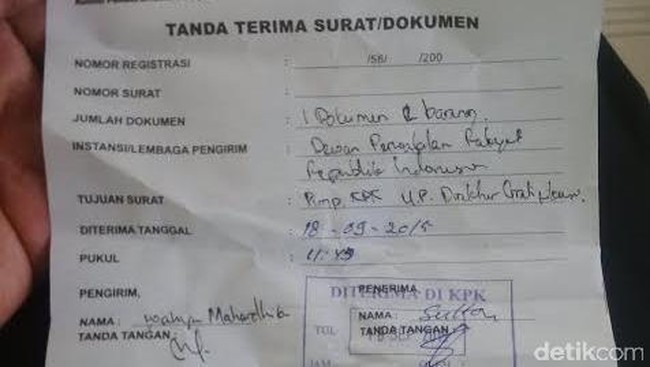 TANDA TERIMA SURAT/DOKUMEN
NOMOR REGISTRASI : /56/ /200
NOMOR SURAT :
JUMLAH DOKUMEN : 1 Dokumen & barang.
INSTANSI/LEMBAGA PENGIRIM : Dewan Perwakilan Rakyat
Republik Indonesia
TUJUAN SURAT : Pimp. KPK U.P. Direktur Gratifikasi.
DITERIMA TANGGAL : 18 - 09 - 2015
PUKUL : 11:45
PENGIRIM,
NAMA :
TANDA TANGAN :
DITERIMA DI KPK
PENERIMA,
NAMA :
TANDA TANGAN
TGL
JAM
detikcom